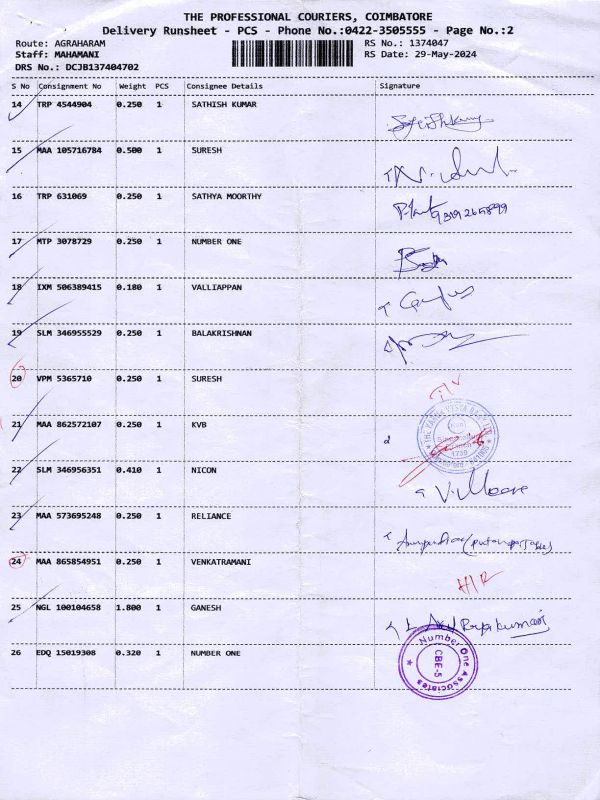 THE PROFESSIONAL COURIERS, COIMBATORE
Delivery Runsheet - PCS - Phone No.:0422-3505555 - Page No.:2
Route: AGRAHARAM
RS No.: 1374047
Staff: MAHAMANI
RS Date: 29-May-2024
DRS No.: DCJB137404702
S No Consignment No Weight PCS Consignee Details Signature
14 TRP 4544904 0.250 1 SATHISH KUMAR
15 MAA 105716784 0.500 1 SURESH
16 TRP 631069 0.250 1 SATHYA MOORTHY
17 MTP 3078729 0.250 1 NUMBER ONE
18 IXM 506389415 0.180 1 VALLIAPPAN
19 SLM 346955529 0.250 1 BALAKRISHNAN
20 VPM 5365710 0.250 1 SURESH
21 MAA 862572107 0.250 1 KVB
22 SLM 346956351 0.410 1 NICON
23 MAA 573695248 0.250 1 RELIANCE
24 MAA 865854951 0.250 1 VENKATRAMANI
H/R
25 NGL 100104658 1.800 1 GANESH
26 EDQ 15019308 0.320 1 NUMBER ONE
Number One Associates
CBE-5